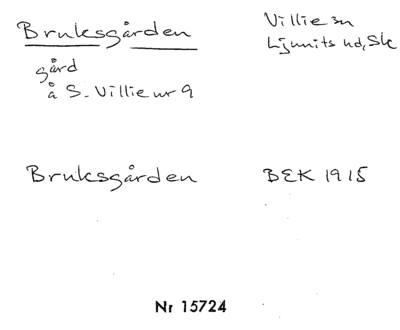 Bruksgården
Villie sn
Ljunits hd, Sk
gård
å S. Villie nr 9
Bruksgården
BEK 1915
Nr 15724